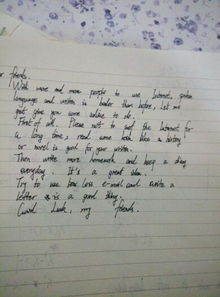 friends.
With more and more people to use Internet, spoken
language and written is harder than before, let me
give you some advice to do.
First of all. Please not to surf the Internet for
a long time, read some book like a history
or novel is good for your written.
Then write more homework and keep a diary
everyday. It's a great idea.
Try to use less e-mail and write a
letter is a good thing.
Good Luck, my friends.